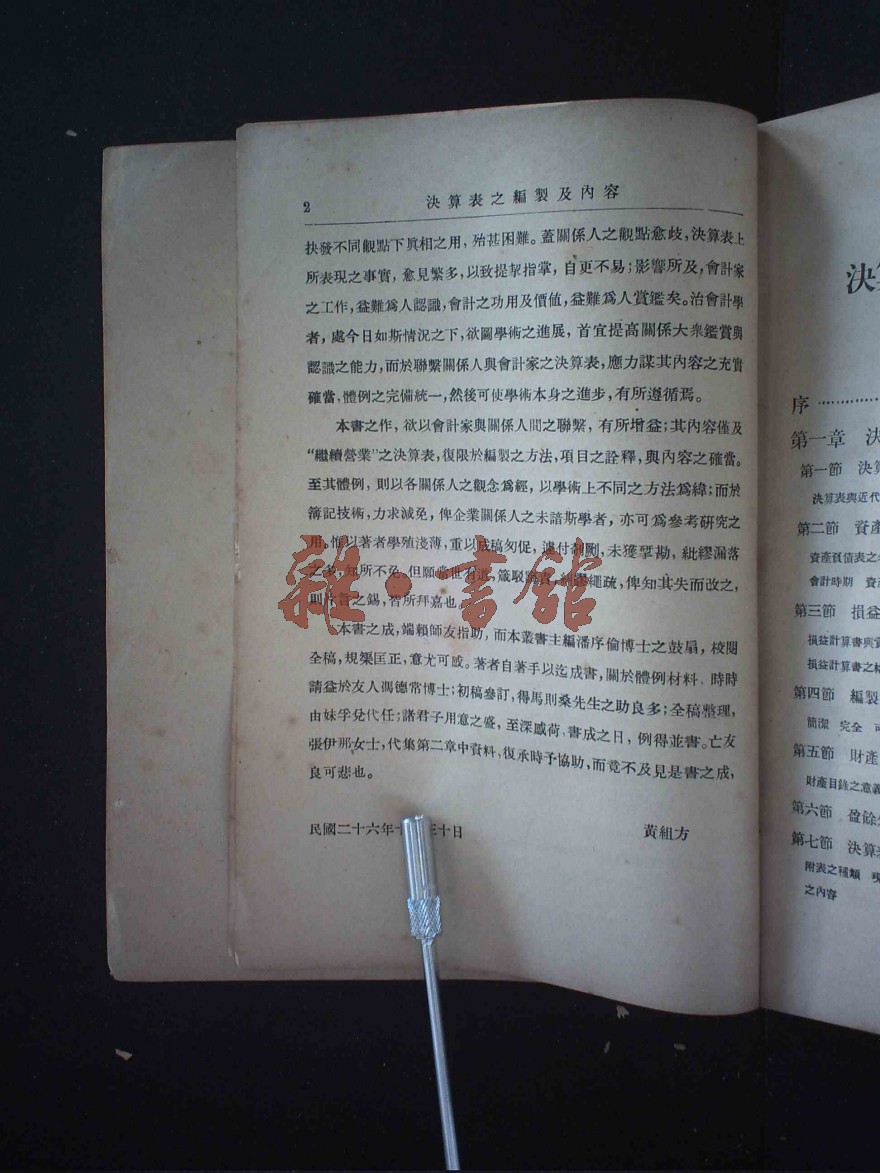 2
決算表之編製及內容
抉發不同觀點下眞相之用，殆甚困難。蓋關係人之觀點愈歧，決算表上
所表現之事實，愈見繁多，以致提挈指掌，自更不易；影響所及，會計家
之工作，益難爲人認識，會計之功用及價値，益難爲人賞鑑矣。治會計學
者，處今日如斯情況之下，欲圖學術之進展，首宜提高關係大衆鑑賞與
認識之能力，而於聯繫關係人與會計家之決算表，應力謀其內容之充實
確當、體例之完備統一，然後可使學術本身之進步，有所遵循焉。
本書之作，欲以會計家與關係人間之聯繫，有所增益；其內容僅及
“繼續營業”之決算表，復限於編製之方法，項目之詮釋，與內容之確當。
至其體例，則以各關係人之觀念爲經，以學術上不同之方法爲緯；而於
簿記技術，力求減免，俾企業關係人之未諳斯學者，亦可爲參考研究之
用。惟以著者學殖淺薄，重以成稿匆促，遽付剞劂，未獲覃勘，紕繆漏落
之多，知所不免，但願當世有道，箴駁，繩疏，俾知其失而改之，
則之錫，皆所拜嘉也。
本書之成，端賴師友指助，而本叢書主編潘序倫博士之鼓扇，校閱
全稿，規槼匡正，意尤可感。著者自著手以迄成書，關於體例材料、時時
請益於友人馮德常博士；初稿參訂，得馬則桑先生之助良多；全稿整理，
由妹孚兌代任；諸君子用意之盛，至深感荷、書成之日，例得並書。亡友
張伊那女士，代集第二章中資料、復承時予協助，而竟不及見是書之成，
良可悲也。
民國二十六年十十日
黃組方
雜·書館
決
序
第一章 決
第一節 決算
決算表與近代
第二節 資產
資產負債表之
會計時期 資產
第三節 損益
損益計算書與資
損益計算書之格
第四節 編製
簡潔 完全
第五節 財產
財產目錄之意義
第六節 盈餘
第七節 決算
附表之種類 現
之內容